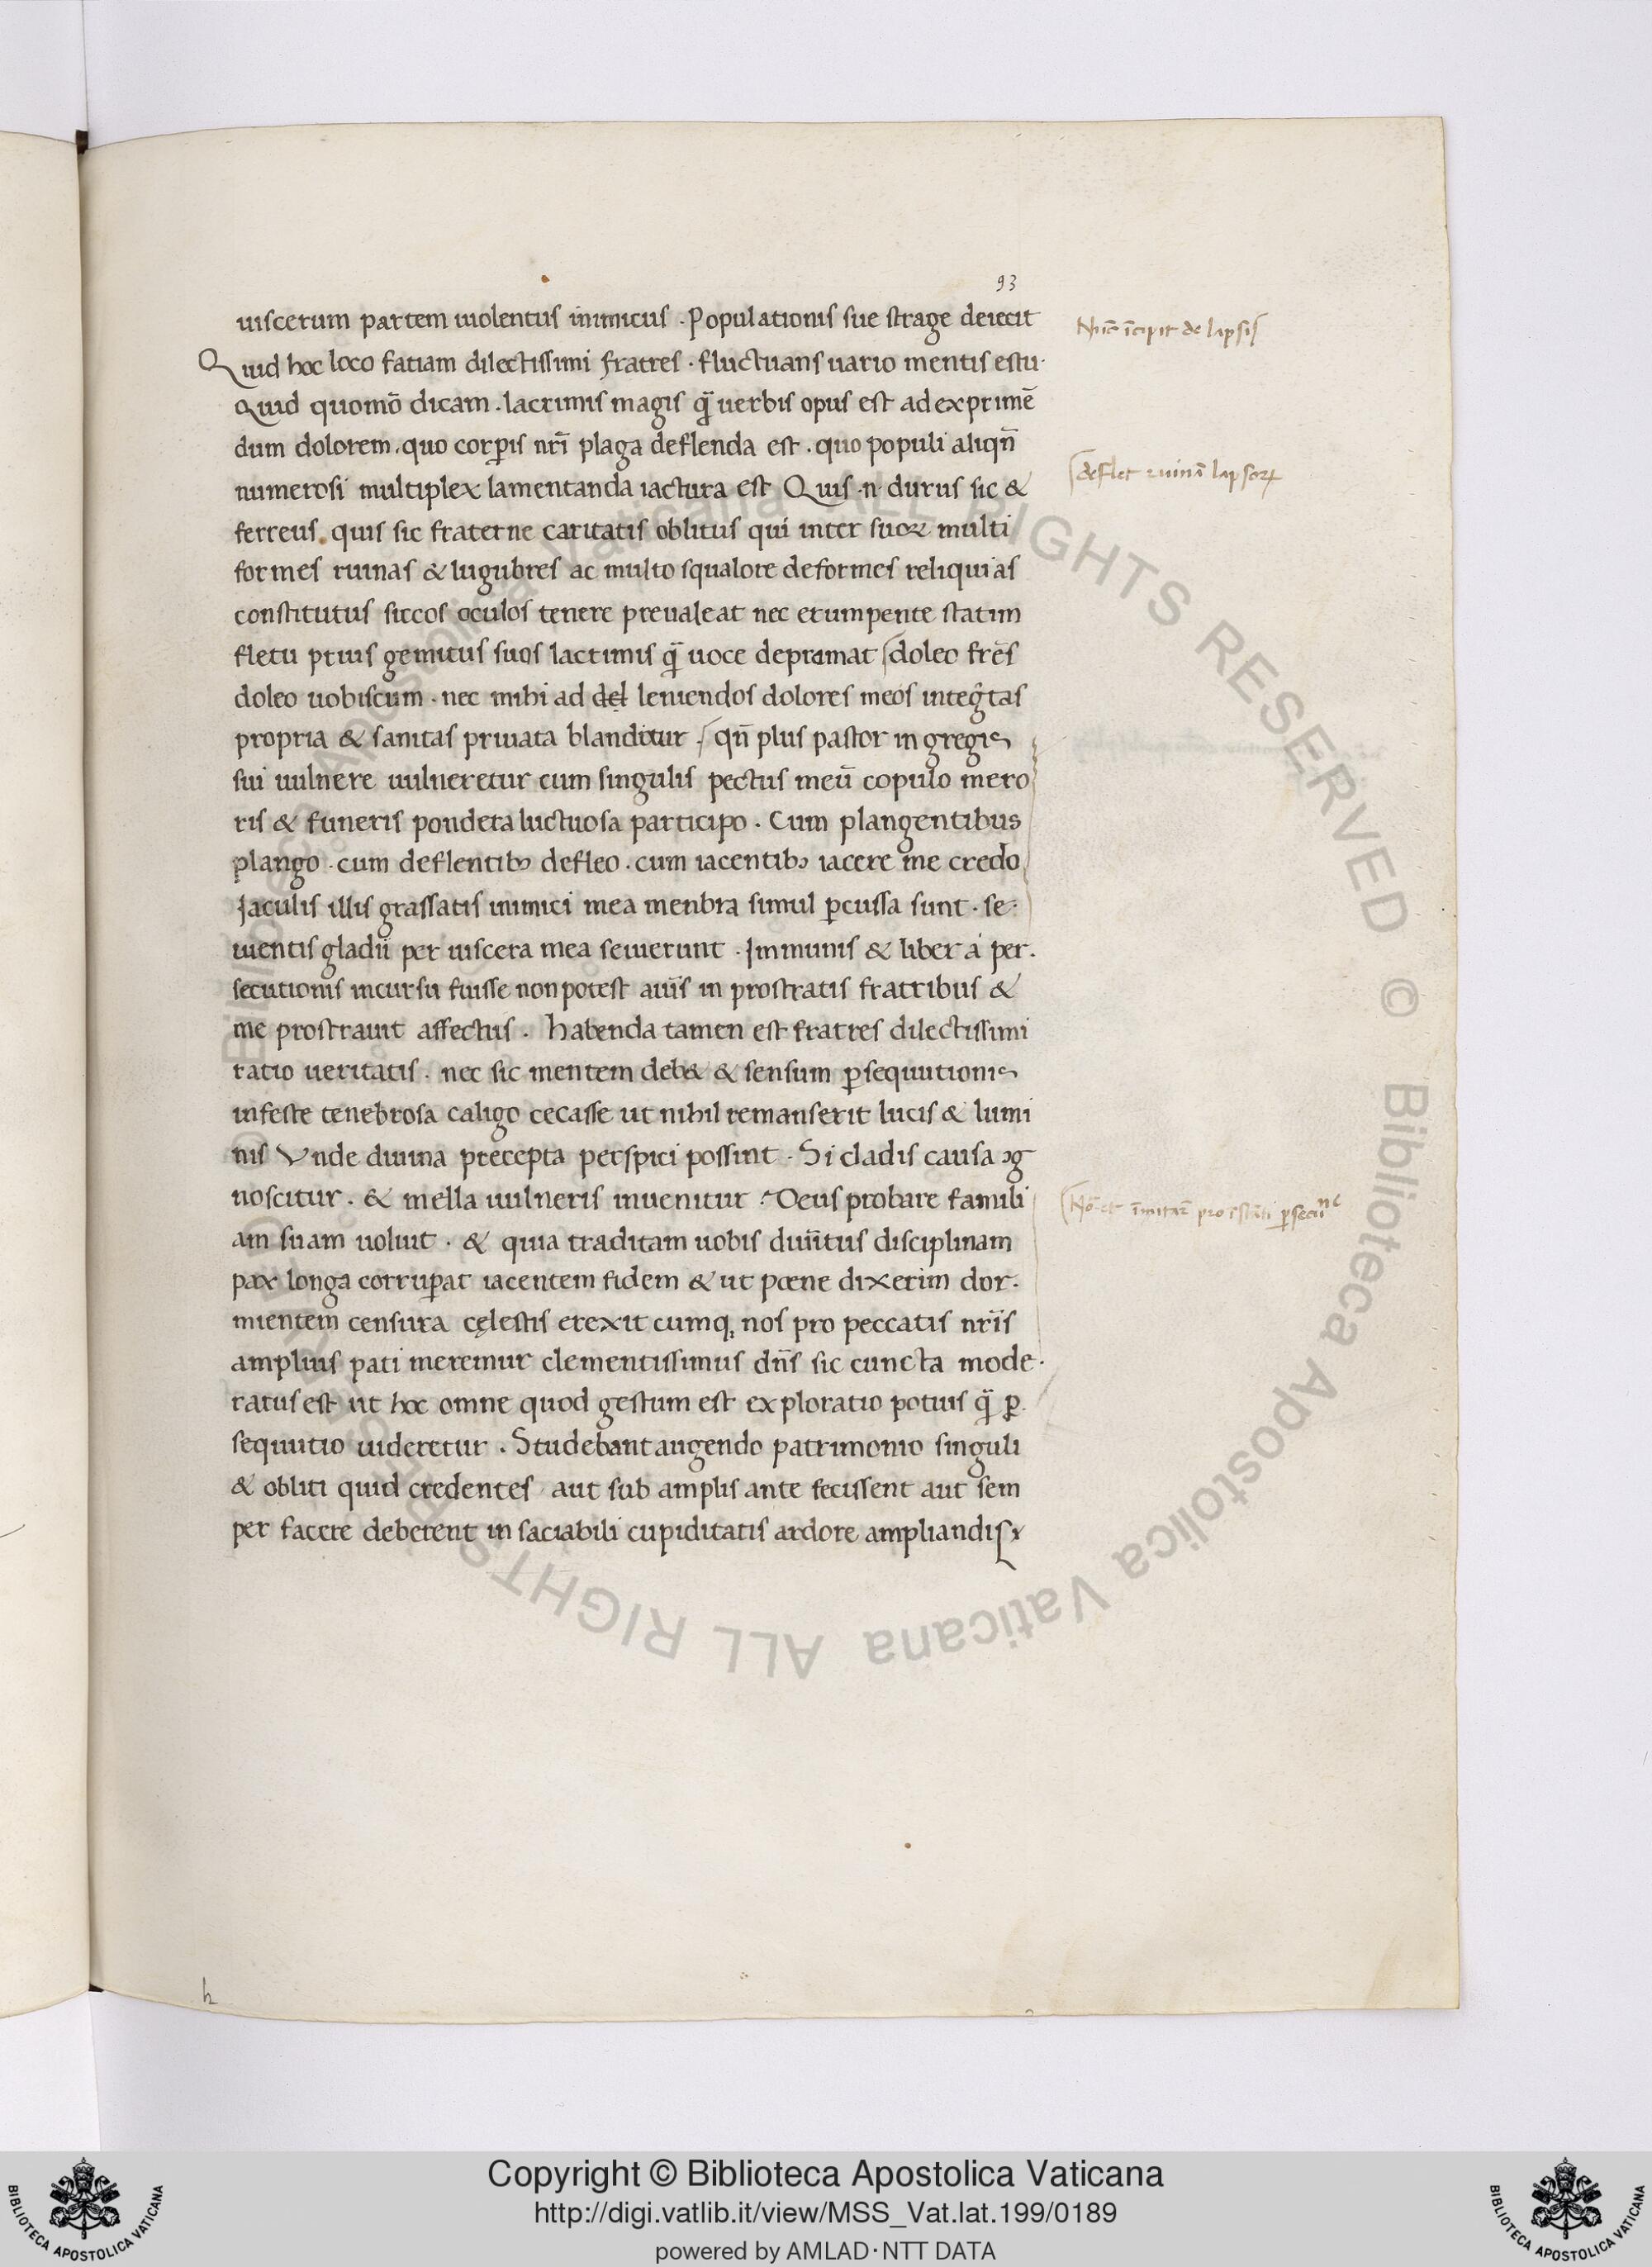 93
uiscerum partem uiolentus inimicus · Populationis sue strage deiecit
Nūc īcipit de lapsis
Quid hoc loco fatiam dilectissimi fratres · fluctuans uario mentis estu ·
Quid quomō dicam · lacrimis magis q̄ uerbis opus est ad exprimē
dum dolorem · quo corꝑis nr̄i plaga deflenda est · quo populi aliqn̄
deflet ruinā lapsoꝝ
numerosi multiplex lamentanda iactura est Quis ·n· durus sic &
ferreus · quis sic fraterne caritatis oblitus qui inter suoꝝ multi
formes ruinas & lugubres ac multo squalore deformes reliquias
constitutus siccos oculos tenere preualeat nec erumpente statim
fletu prius gemitus suos lacrimis q̄ uoce depramat doleo fr̄es
doleo uobiscum · nec mihi ad del leniendos dolores meos integ̃tas
propria & sanitas priuata blanditur · qn̄ plus pastor in gregis
sui uulnere uulneretur cum singulis pectus meū copulo mero
ris & funeris pondera luctuosa participo · Cum plangentibus
plango · cum deflentibꝫ defleo · cum iacentibꝫ iacere me credo
Jaculis illis grassatis inimici mea menbra simul ꝑcussa sunt · se ·
uientis gladii per uiscera mea seuierunt · Immunis & liber a per ·
secutionis incursu fuisse non potest aīus in prostratis fratribus &
me prostrauit affectus · habenda tamen est fratres dilectissimi
ratio ueritatis · nec sic mentem deb& & sensum ꝑsequutionis
infeste tenebrosa caligo cecasse ut nihil remanserit lucis & lumi
nis Vnde diuina precepta perspici possint · Si cladis causa ɔg
noscitur · & mella uulneris inuenitur · Deus probare famili
am suam uoluit · & quia traditam uobis diuīitus disciplinam
pax longa corruꝑat iacentem fidem & ut pœne dixerim dor ·
mientem censura cęlestis erexit cumq; nos pro peccatis nr̄is
amplius pati meremur clementissimus dn̄s sic cuncta mode ·
ratus est ut hoc omne quod gestum est exploratio potius q̄ ꝑ
sequutio uideretur · Studebant augendo patrimonio singuli
& obliti quid credentes aut sub amplis ante fecissent aut sem
per facere deberent in saciabili cupiditatis ardore ampliandis
h
© Biblioteca Apostolica Vaticana ALL RIGHTS RESERVED
Copyright © Biblioteca Apostolica Vaticana
http://digi.vatlib.it/view/MSS_Vat.lat.199/0189
powered by AMLAD·NTT DATA
BIBLIOTECA APOSTOLICA VATICANA
BIBLIOTECA APOSTOLICA VATICANA